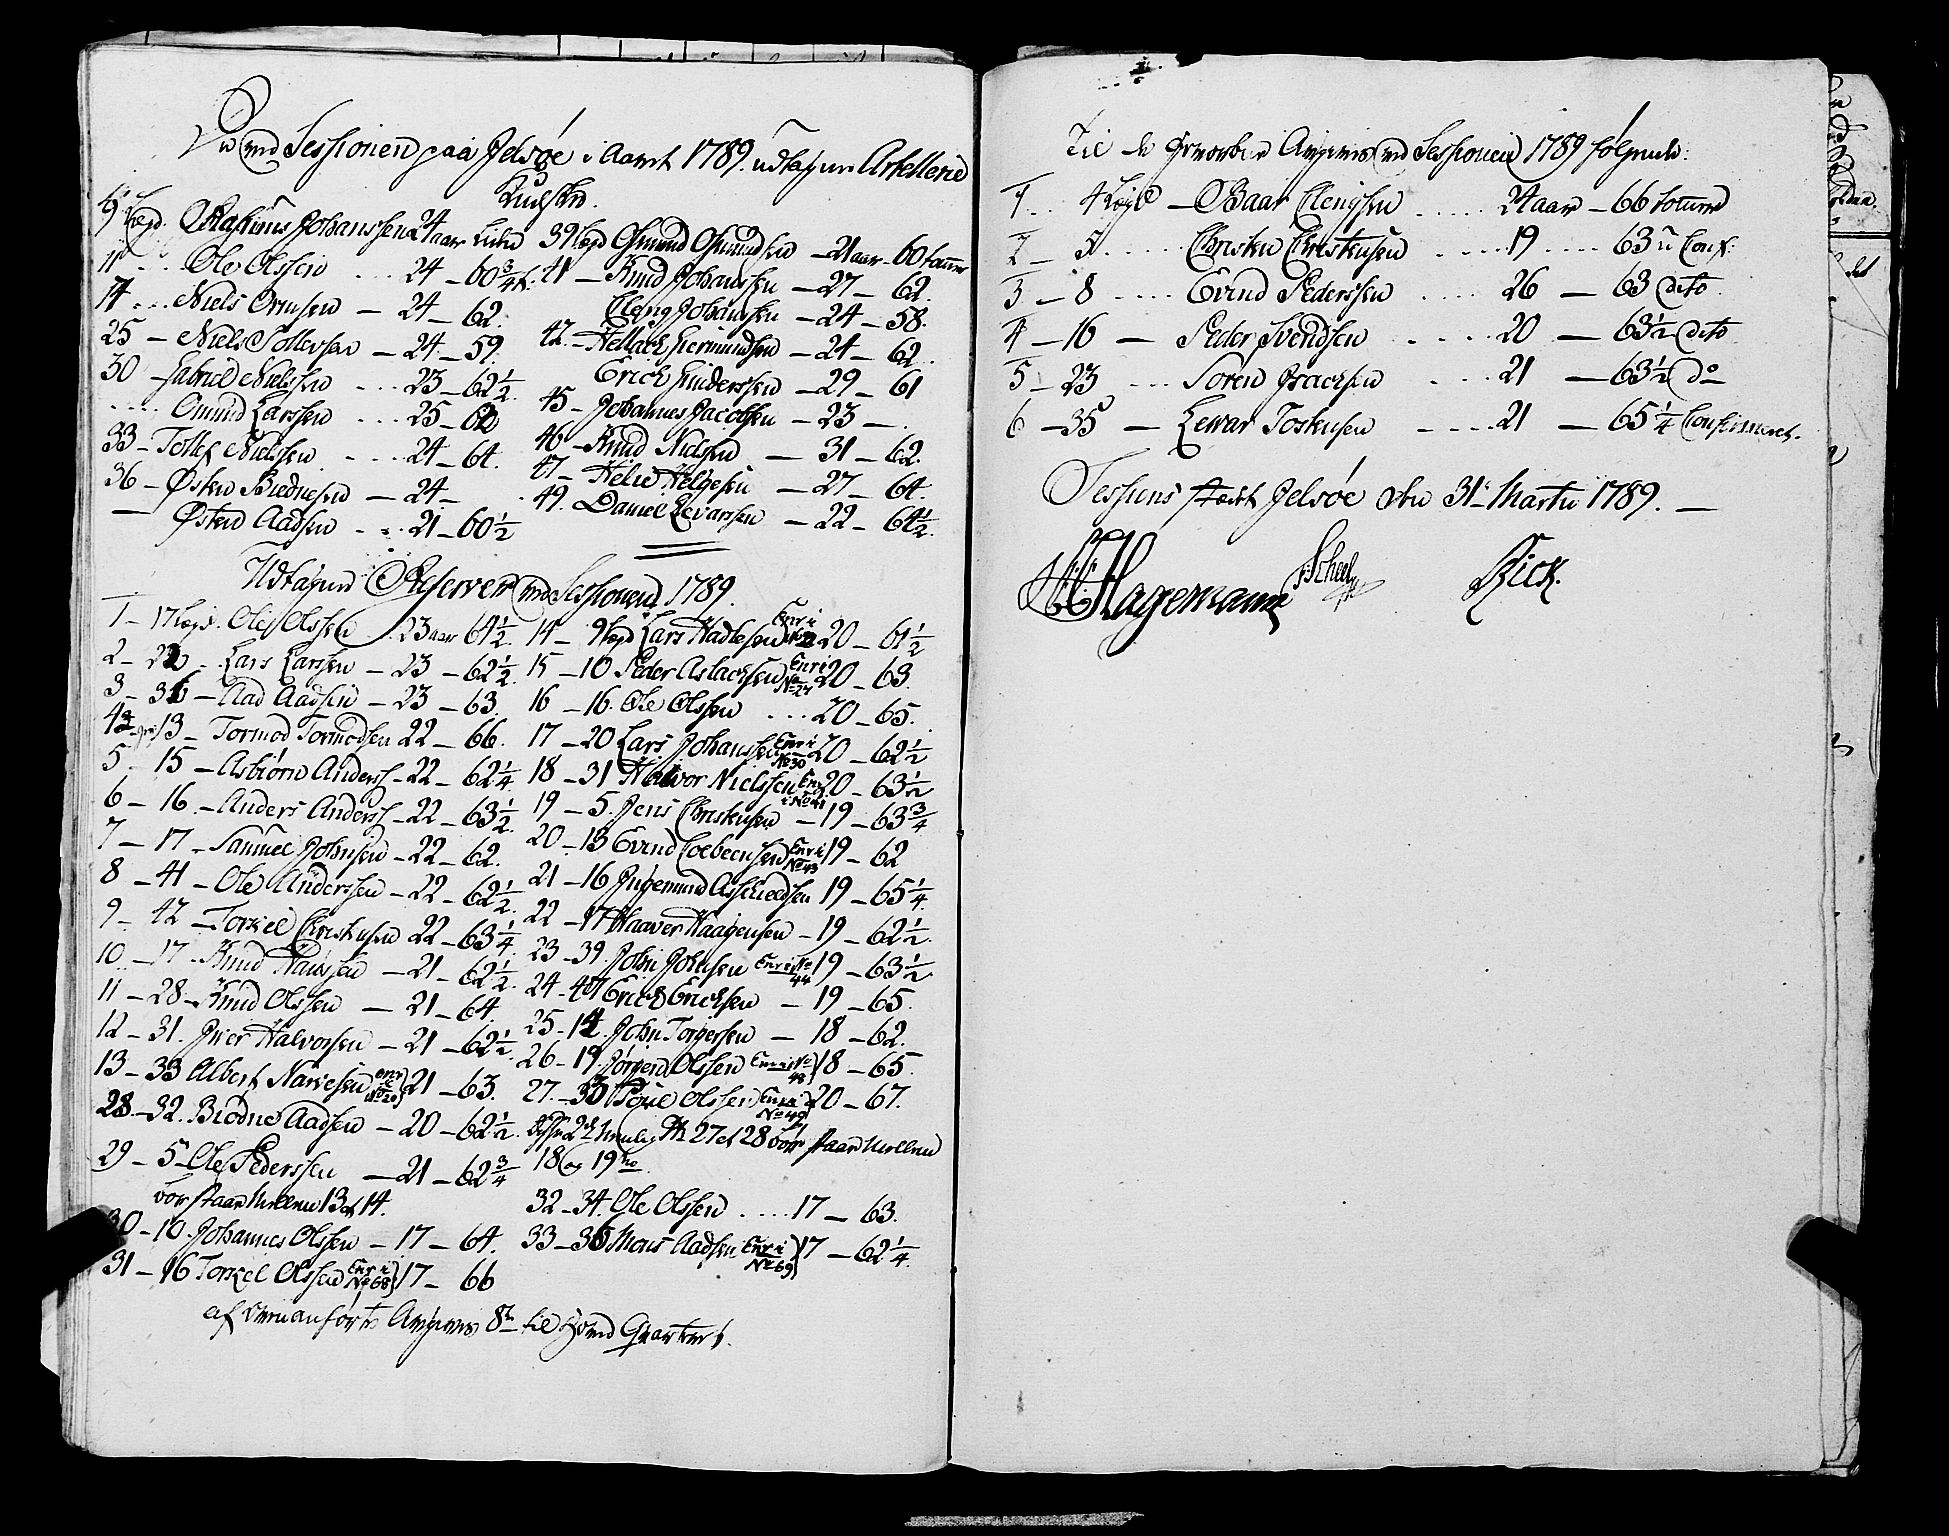 Ved Sessionen paa Jelsøe i Aaret 1789 udtagne Artellerie
Kudske.
9 Lægd. Rasmus Johanssen 24 aar
11 Ole Olssen 24 – 60 3/4
14 Niels Ormsen – 24 – 62.
25 – Niels Tollevsen – 24 – 59.
30 Gabriel Nielssen 23 – 62 1/2
Omund Larssen 25 – 62
33 – Tollef Nielssen 24 – 64.
36 – Østen Biednesen – 24 –
Østen Aadsen 21 – 60 1/2
39 Lægd Osmund Osmundsen – 21 aar – 60 tommer
41 – Knud Johanssen – 27 – 62.
Eleng Johanssen – 24 – 58.
42 – Hellach Giermundsen – 24 – 62.
Erich Gunderssen – 29 – 61
45 – Johannes Jacobsen – 23 –
46 – Knud Nielsen – 31 – 62.
47 – Helie Helgesen – 27 – 64.
49. Daniel Levarssen – 22 – 64 1/2.
Udtagne Reserver ved Sessionen 1789.
1 – 17 Lægd. Ole Olssen 23 aar 64 1/2.
2 – 22 Lars Larssen – 23 – 62 1/2.
3 – 36 – Aad Aadsen – 23 – 63.
4 – 13 – Tormod Tormodsen 22 – 66.
5 – 15 – Asbiørn Anderss – 22 – 62 1/4
6 – 16 – Anders Anderss – 22 – 63 1/2.
7 – 17 – Samuel Johnsen – 22 – 62.
8 – 41 – Ole Anderssen – 22 – 62 1/2.
9 – 42 – Torkel Christensen 22 – 63 1/4
10 – 17 – Knud Hanssen – 21 – 62 1/2.
11 – 28 – Knud Olssen – 21 – 64.
12 – 31. Iver Halvorssen – 21 – 62 1/2.
13 – 33 Albert Narvesen enr i No 20 21 – 63.
28 – 32. Biødne Aadsen – 20 – 62 1/2.
29 – 5 – Ole Pederssen – 21 – 62 3/4
forstaar Mellem 13 et 14.
30 – 10. Johannes Olssen – 17 – 64.
31 – 16 Torkel Olssen Enr i No 68 17 – 66
14 – 9 Lægd Lars Hadlesen Enr i 20 – 61 1/2
15 – 10 Peder Aslachsen Enr i No 27 20 – 63.
16 – 16. Ole Olssen 20 – 65.
17 – 20 Lars Johanssen Enr i No 30 20 – 62 1/2
18 – 31 Halvor Nielssen Enr i No 41 20 – 63 1/2
19 – 5. Jens Christensen – 19 – 63 3/4
20 – 13 Evind Colbeensen Enr i No 43 19 – 62
21 – 16 Ingemund 19 – 65 1/4.
22 – 17 Haaver Haagensen – 19 – 62 1/2.
23 – 39. John Johnsen Enr i No 44 19 – 63 1/2
24 – 47 Erich Erichsen – 19 – 65.
25 – 14. John Torgersen – 18 – 62.
26 – 19. Jørgen Olssen Enr i No 48 18 – 65.
27. – 30 Olssen Enr i No 49 20 – 67.
Disse 2de Nemlig No 27 et 28 forstaar Mellem
18 og 19 no.
32 – 34. Ole Olssen 17 – 63.
33 – 36 Mons Aadsen Enr i No 69 17 – 62 1/4.
af ovenanførte Angives 8te til Quarteer.
Til Angives ved Sessionen 1789 følgende:
1 4 Lægd – Baar Elengsen 24 aar – 66 tommer
2 – 5 Christen Christensen 19 63 u Conf:
3 – 8 Evind Pederssen 26 – 63 dito
4 – 16 – Peder Svendsen 20 – 63 1/2 dito
5 – 23 Soren Isachsen 21 – 63 1/2 do
6 – 35 – Levar Tostensen 21 – 65 1/4 Confirmeret.
Sessions stædet Jelsøe den 31 Martii 1789. –
Hagemann Scheel Rick.